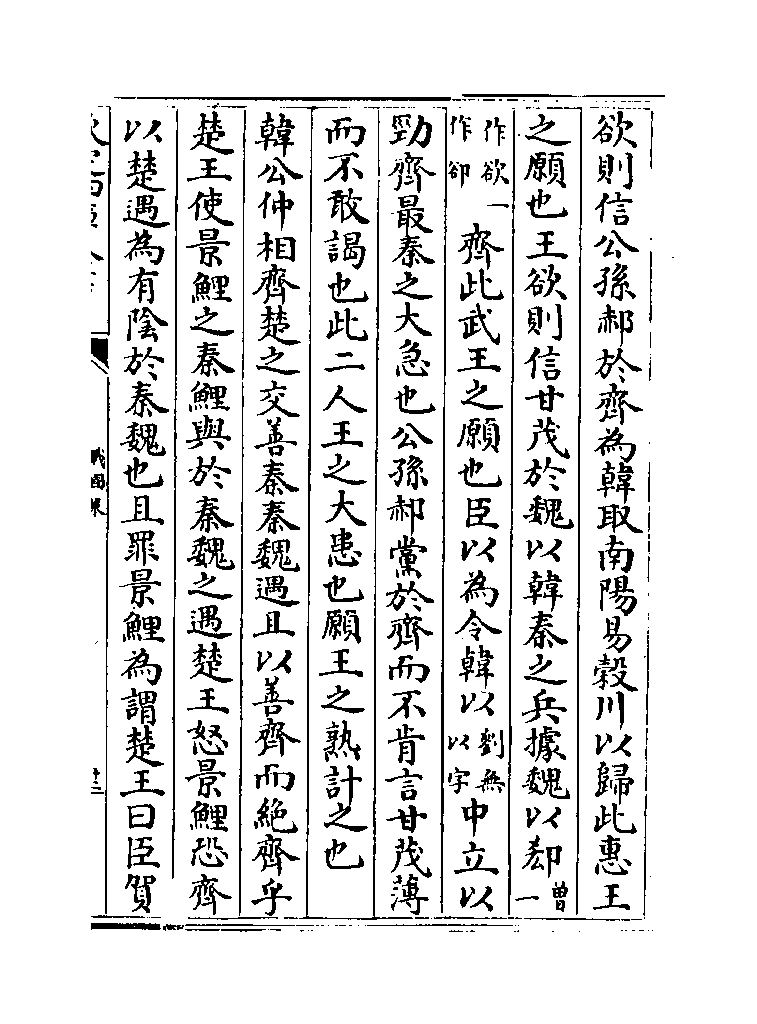 欲則信公孫郝於齊為韓取南陽易榖川以歸此惠王
之願也王欲則信甘茂於魏以韓秦之兵據魏以郄曾一
作欲一作卻齊此武王之願也臣以為令韓以劉無以字中立以
勁齊最秦之大急也公孫郝黨於齊而不肯言甘茂薄
而不敢謁也此二人王之大患也願王之熟計之也
韓公仲相齊楚之交善秦秦魏遇且以善齊而絶齊乎
楚王使景鯉之秦鯉與於秦魏之遇楚王怒景鯉恐齊
以楚遇為有陰於秦魏也且罪景鯉為謂楚王曰臣賀
戰國策